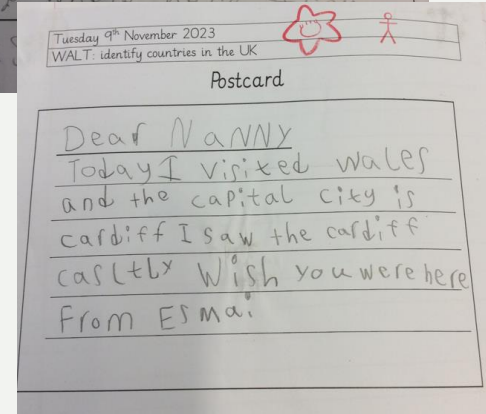 Tuesday 9th November 2023
WALT: identify countries in the UK
Postcard
Dear NaNNY
Today I visited wales
and the capital city is
cardiff I saw the cardiff
casltly Wish you were here
From Esmai